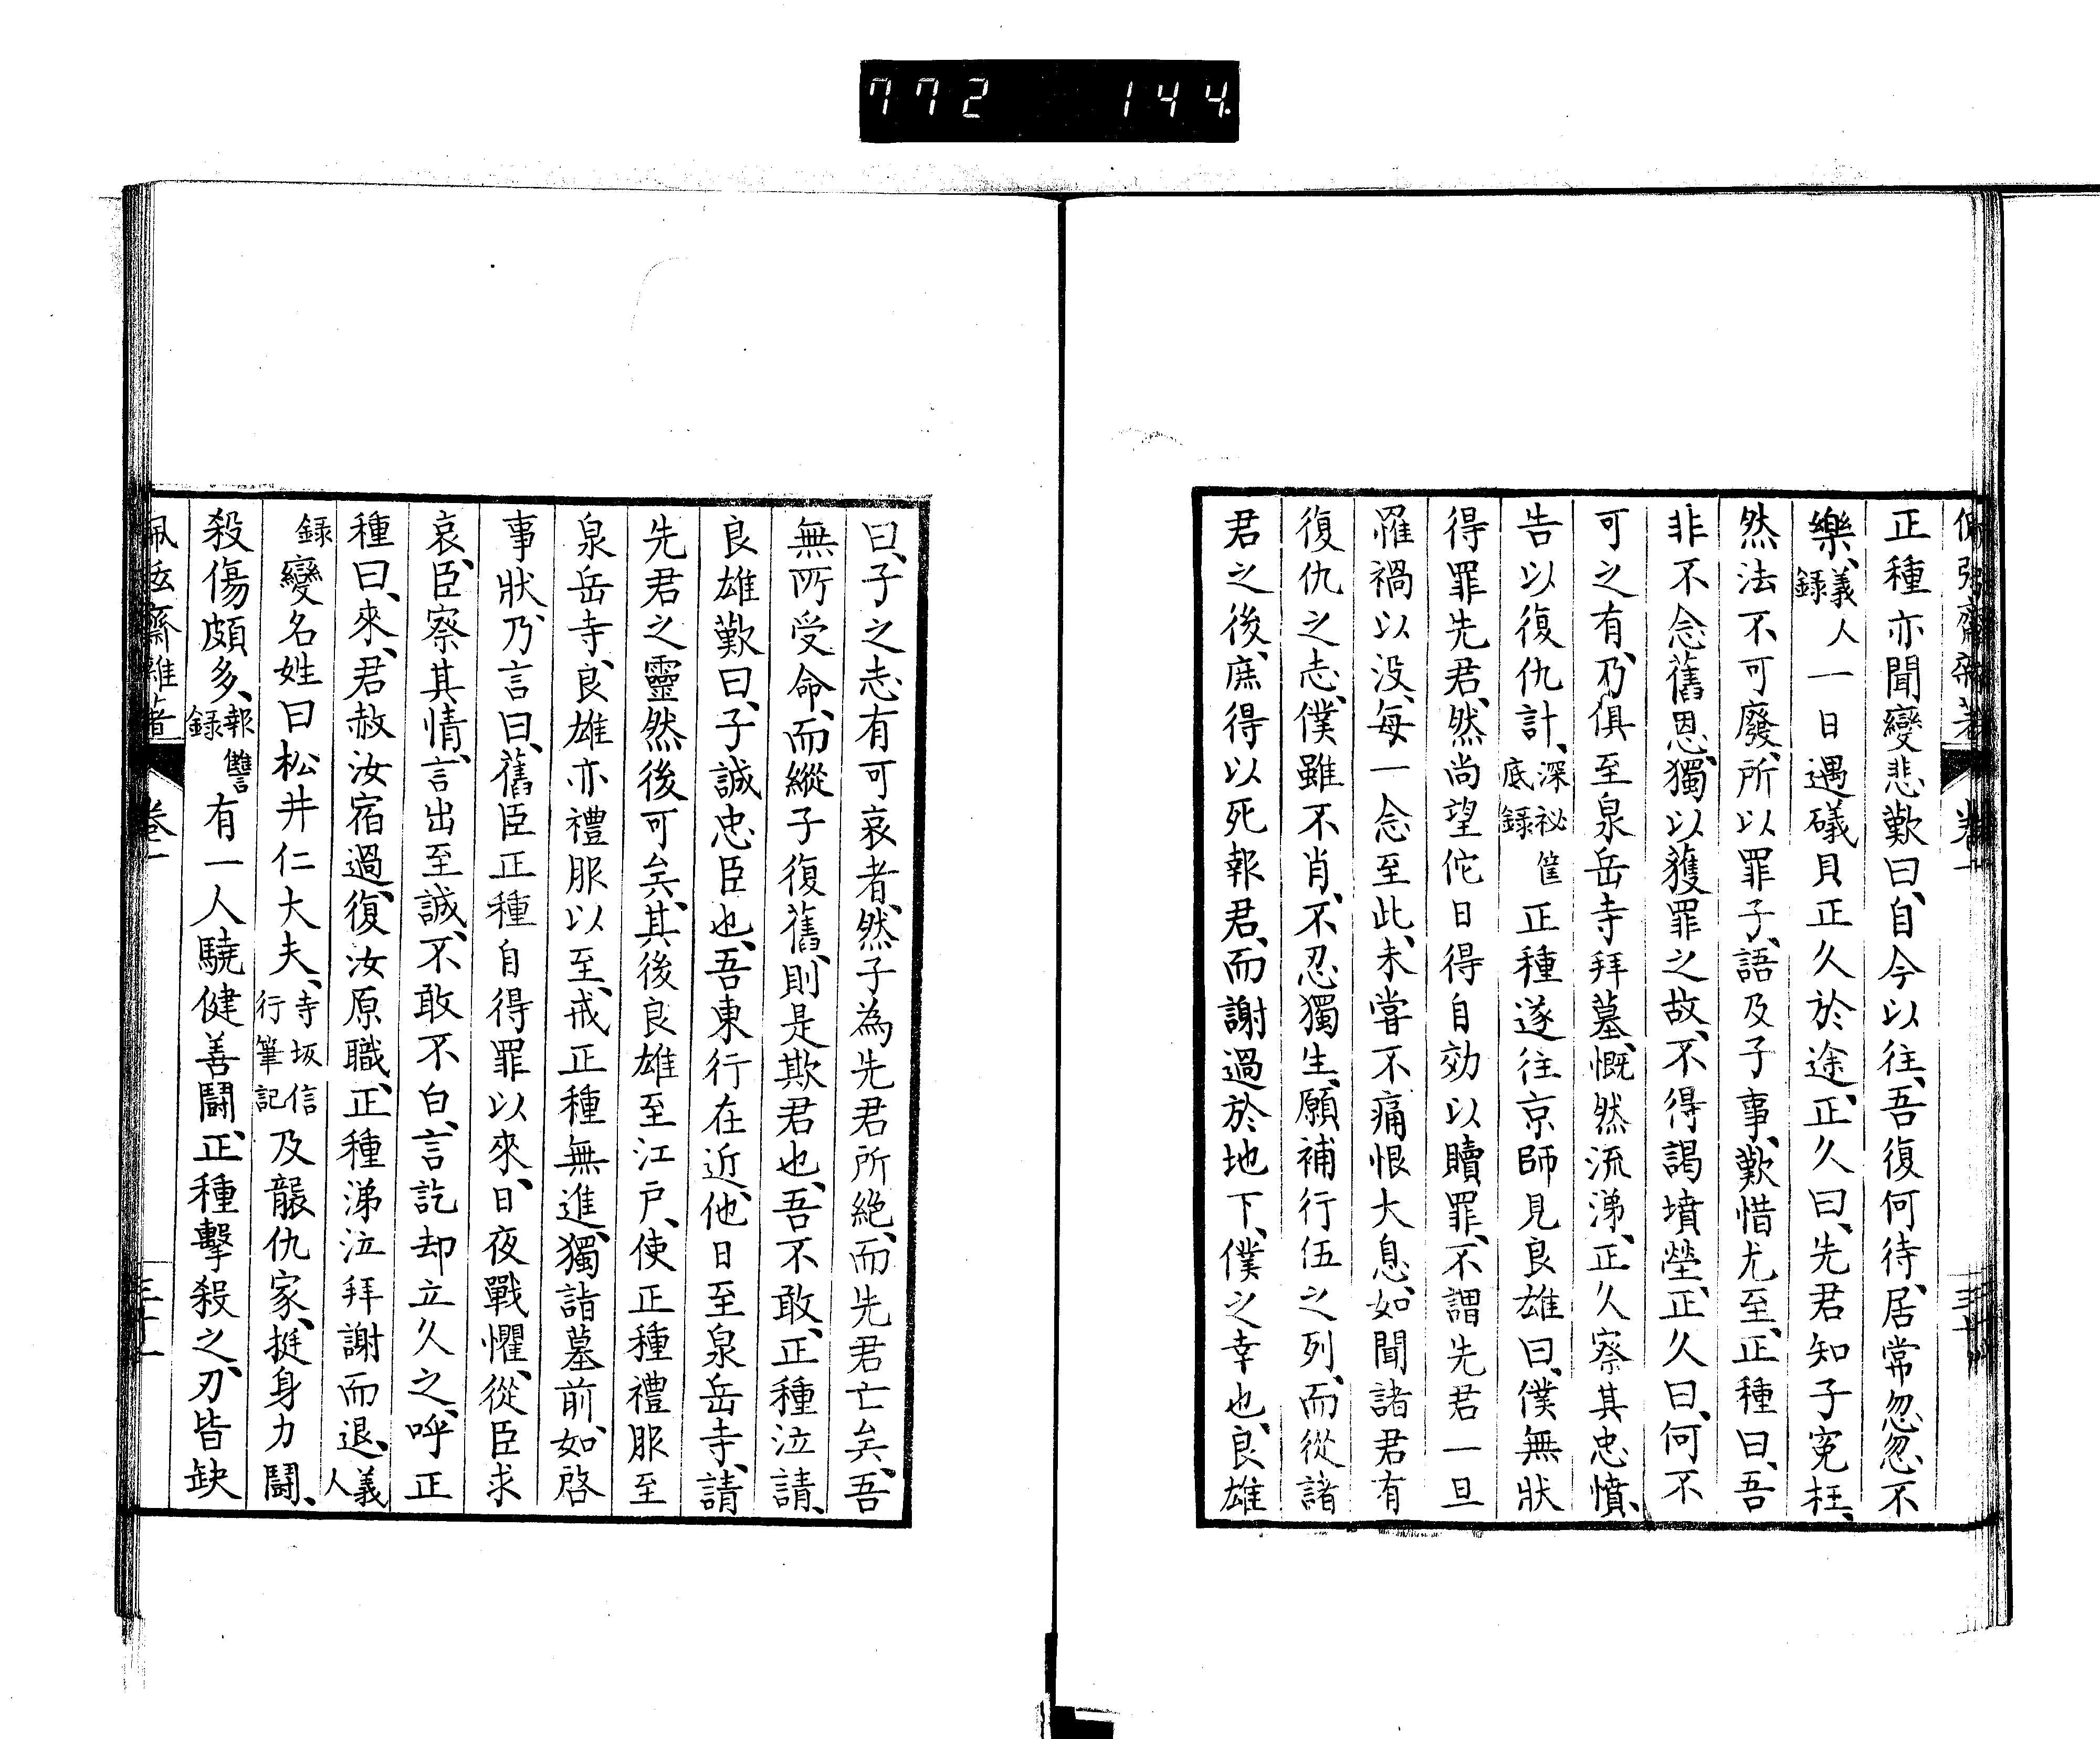 772 144
正種亦聞變悲歎曰、自今以往、吾復何待、居常忽忽不
樂、義人錄一日遇礒貝正久於途、正久曰、先君知子寃枉、
然法不可廢、所以罪子、語及子事、歎惜尤至、正種曰、吾
非不念舊恩、獨以獲罪之故、不得謁墳塋、正久曰、何不
可之有、乃俱至泉岳寺拜墓、慨然流涕、正久察其忠憤、
告以復仇計、深祕筐底錄正種遂往京師見良雄曰、僕無狀
得罪先君、然尚望佗日得自効以贖罪、不謂先君一旦
罹禍以没、每一念至此、未嘗不痛恨大息、如聞諸君有
復仇之志、僕雖不肖、不忍獨生、願補行伍之列、而從諸
君之後、庶得以死報君、而謝過於地下、僕之幸也、良雄
曰、子之志有可哀者、然子為先君所絶、而先君亡矣、吾
無所受命、而縱子復舊、則是欺君也、吾不敢、正種泣請、
良雄歎曰、子誠忠臣也、吾東行在近、他日至泉岳寺、請
先君之靈然後可矣、其後良雄至江戸、使正種禮服至
泉岳寺、良雄亦禮服以至、戒正種無進、獨詣墓前、如啓
事狀、乃言曰、舊臣正種自得罪以來、日夜戰懼、從臣求
哀、臣察其情、言出至誠、不敢不白、言訖却立久之、呼正
種曰、來、君赦汝宿過、復汝原職、正種涕泣拜謝而退、義人
錄變名姓曰松井仁大夫、寺坂信行筆記及襲仇家、挺身力鬪、
殺傷頗多、報讐錄有一人驍健善鬪、正種擊殺之、刃皆缺
齋雜著 卷一